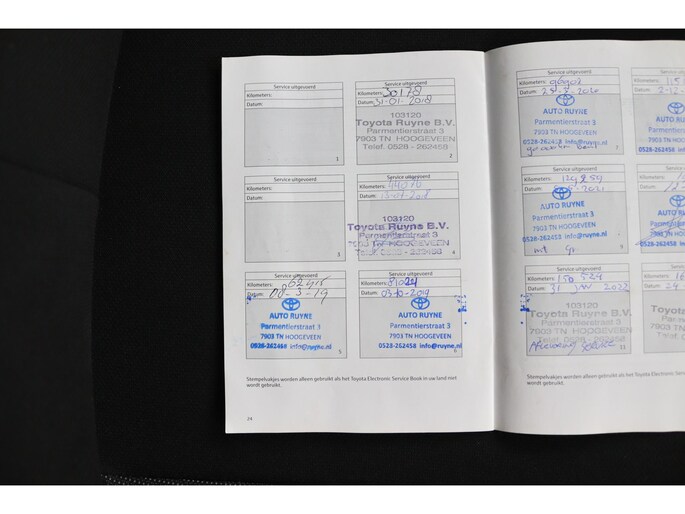 Service uitgevoerd
Kilometers:
Datum:
1
Service uitgevoerd
Kilometers: 30178
Datum: 31-01-2018
103120
Toyota Ruyne B.V.
Parmentierstraat 3
7903 TN HOOGEVEEN
Telef. 0528 - 262458
2
Service uitgevoerd
Kilometers:
Datum:
3
Service uitgevoerd
Kilometers:
Datum:
103120
Toyota Ruyne B.V.
Parmentierstraat 3
7903 TN HOOGEVEEN
Telef. 0528 - 262458
4
Service uitgevoerd
Kilometers:
Datum: 08-3-19
AUTO RUYNE
Parmentierstraat 3
7903 TN HOOGEVEEN
0528-262458 info@ruyne.nl
5
Service uitgevoerd
Kilometers: 81024
Datum: 03-10-2019
AUTO RUYNE
Parmentierstraat 3
7903 TN HOOGEVEEN
0528-262458 info@ruyne.nl
6
Stempelvakjes worden alleen gebruikt als het Toyota Electronic Service Book in uw land niet
wordt gebruikt.
24
Service uitgevoerd
Kilometers:
Datum:
AUTO RUYNE
Parmentierstraat 3
7903 TN HOOGEVEEN
0528-262458 info@ruyne.nl
7
Service uitgevoerd
Kilometers:
Datum:
AUTO RUYNE
Parmentierstraat 3
7903 TN HOOGEVEEN
0528-262458 info@ruyne.nl
9
Service uitgevoerd
Kilometers: 150 524
Datum: 31 JAN 2022
103120
Toyota Ruyne B.V.
Parmentierstraat 3
7903 TN HOOGEVEEN
Telef. 0528 - 262458
11
Kilometers:
Datum: 2-12-
Kilometers:
Datum:
Kilometers: 16
Datum: 24
Stempelvakjes worden alleen gebruikt als het Toyota Electronic
wordt gebruikt.